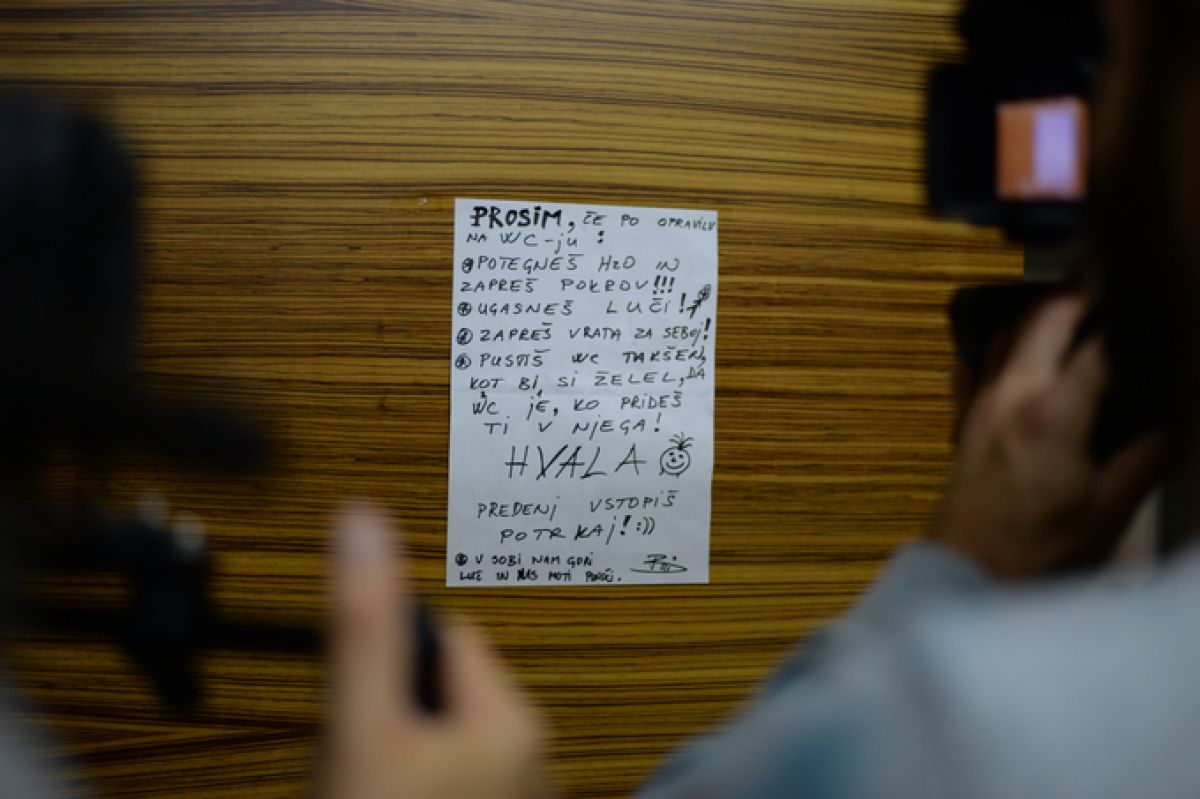 PROSIM, ČE PO OPRAVILU
NA WC-ju :
POTEGNEŠ H2O IN
ZAPREŠ POKROV!!!
UGASNEŠ LUČI!
ZAPREŠ VRATA ZA SEBOJ!
PUSTIŠ WC TAKŠEN,
KOT BI SI ŽELEL, DA
WC JE, KO PRIDEŠ
TI V NJEGA!
HVALA
PREDENJ VSTOPIŠ
POTRKAJ! :))
V SOBI NAM GORI
LUČ IN NAS MOTI